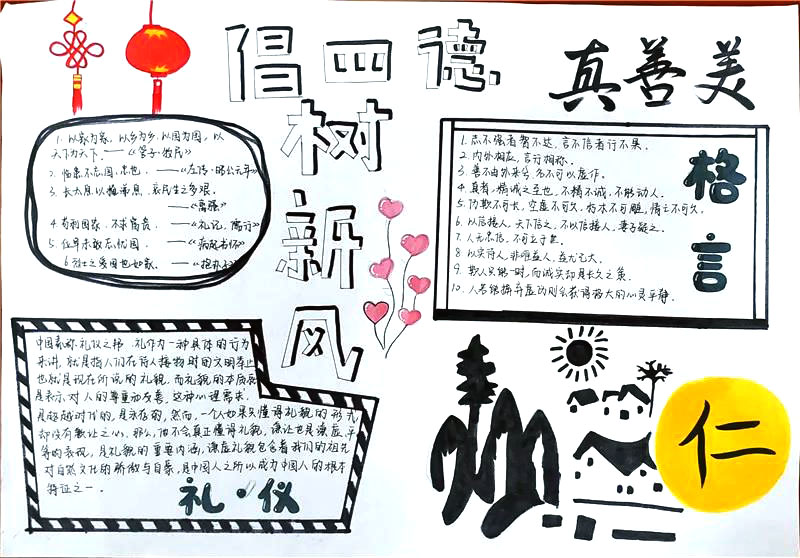 倡四德
树新风
真善美
1. 以家为家，以乡为乡，以国为国，以
天下为天下。——《管子·牧民》
2. 临患不忘国，忠也。——《左传·昭公元年》
3. 长太息以掩涕息，哀民生之多艰。
——《离骚》
4. 苟利国家，不求富贵。——《礼记，儒行》
5. 位卑未敢忘忧国。——《病起书怀》
6. 烈士之爱国也如家。——《抱朴子》
格言
1. 志不强者智不达，言不信者行不果。
2. 内外相应，言行相称。
3. 善不由外来兮，名不可以虚作。
4. 真者，精诚之至也，不精不诚，不能动人。
5. 伪欺不可长，空虚不可久，朽木不可雕，情亡不可久。
6. 以信接人，天下信之，不以信接人，妻子疑之。
7. 人无忠信，不可立于世。
8. 以实待人，非唯益人，益己尤大。
9. 欺人只能一时，而诚实却是长久之策。
10. 人若能摒弃虚伪则会获得极大的心灵平静。
中国素称礼仪之邦，礼作为一种具体的行为
来讲，就是指人们在待人接物时的文明举止
也就是现在所说的礼貌，而礼貌的本质
是表示对人的尊重和友善，这种心理需求，
是超越时代的，是永存的，然而，一个人如果只懂得礼貌的形式
却没有敬让之心，那么，他不会真正懂得礼貌，谦让也是谦虚，平
等的表现，是礼貌的重要内涵，谦虚礼貌包含着我们的祖先
对自然文化的骄傲与自豪，是中国人之所以成为中国人的根本
特征之一。
礼·仪
仁